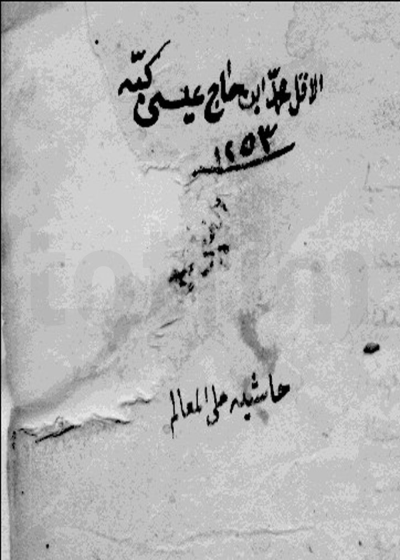 الاقل محمد ابن حاج عيسى كبه
١٢٥٣
حاشيه على المعالم